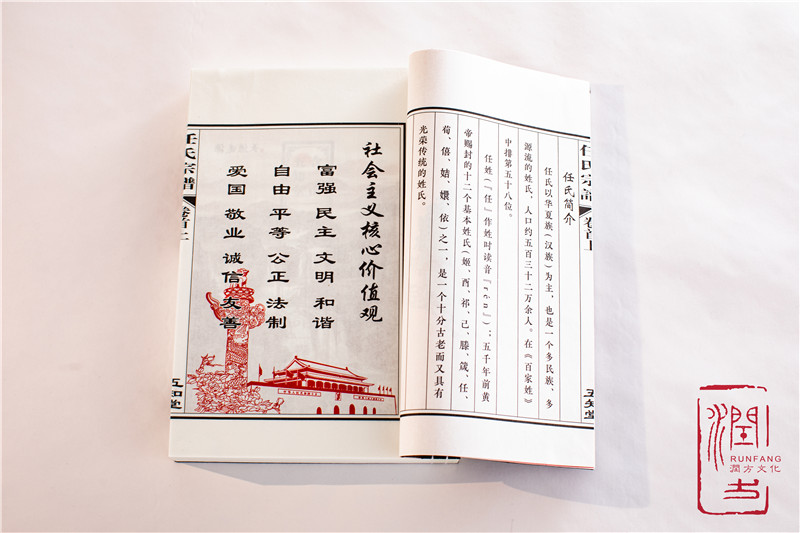 任氏宗譜
五知堂
任氏简介
任氏以华夏族（汉族）为主，也是一个多民族、多
源流的姓氏，人口约五百三十二万余人。在《百家姓》
中排第五十八位。
任姓（『任』作姓时读音『rén』）：五千年前黄
帝赐封的十二个基本姓氏（姬、酉、祁、己、滕、箴、任、
荀、僖、姞、嬛、依）之一，是一个十分古老而又具有
光荣传统的姓氏。
社会主义核心价值观
富强 民主 文明 和谐
自由 平等 公正 法制
爱国 敬业 诚信 友善
任氏宗譜
卷首
五知堂
潤方
RUNFANG
潤方文化